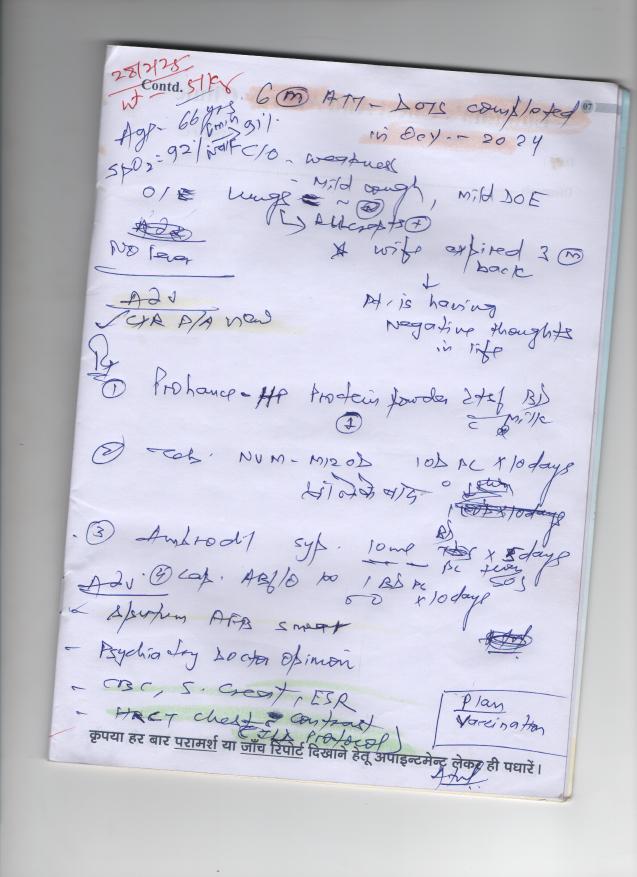 28/2/25
Contd.
wt - 51kg
07
6 (m) ATT - DOTS completed
in Oct. - 2024
Age - 66 yrs
SpO2 = 92%
6min
walk
91%
C/O - weakness
- Mild cough, mild DOE
O/E lungs
Adv
No fever
* wife expired 3 (m)
back
↓
Pt. is having
negative thoughts
in life
Adv
✓ CXR P/A view
Rx
① Prohance-HP Protein powder 2tsf BD
c milk
② Tab. NUM-M120D 1OD PC x 10 days
खाने के बाद
③ Ambrodil syp. 10ml BD x 5 days
SOS
Adv. ④ Cap. 1 BD PC
x 10 days
- Sputum AFB smear
- Psychiatry Doctor opinion
- CBC, S. Creat, ESR
- HRCT chest c contrast
(ILD Protocol)
Plan
Vaccination
कृपया हर बार परामर्श या जाँच रिपोर्ट दिखाने हेतू अपाइन्टमेन्ट लेकर ही पधारें।